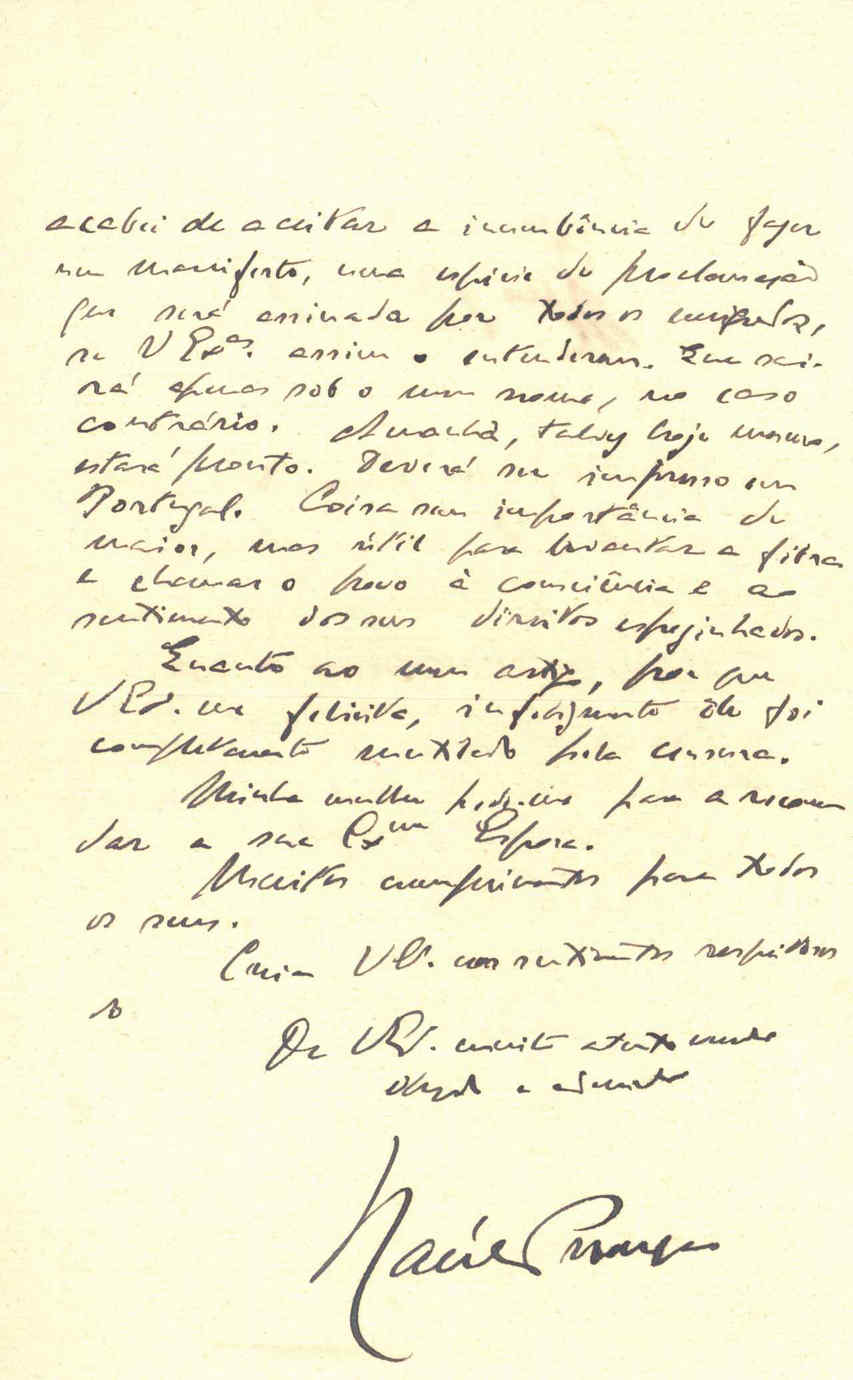 acabei de aceitar a incumbência de fazer
um manifesto, uma espécie de proclamação
que será assinada por todos os emigrados,
se V Ex.as assim o entenderem. Que sai-
rá apenas sob o meu nome, no caso
contrário. Amanhã, talvez hoje mesmo,
estará pronto. Deverá ser impresso em
Portugal. Coisa sem importância de
maior, mas útil para levantar a fibra
e chamar o povo à consciência e ao
sentimento dos seus direitos espezinhados.
Quanto ao meu artigo, por que
V Ex. me felicita, infelizmente êle foi
completamente mutilado pela censura.
Minha mulher pede-me para a recomen
dar a sua Ex.ma Esposa.
Muitos cumprimentos para todos
os seus.
Creia V Ex. nos sentimentos respeitosos
do
De V Ex. muito atento
obrgdo e admirador